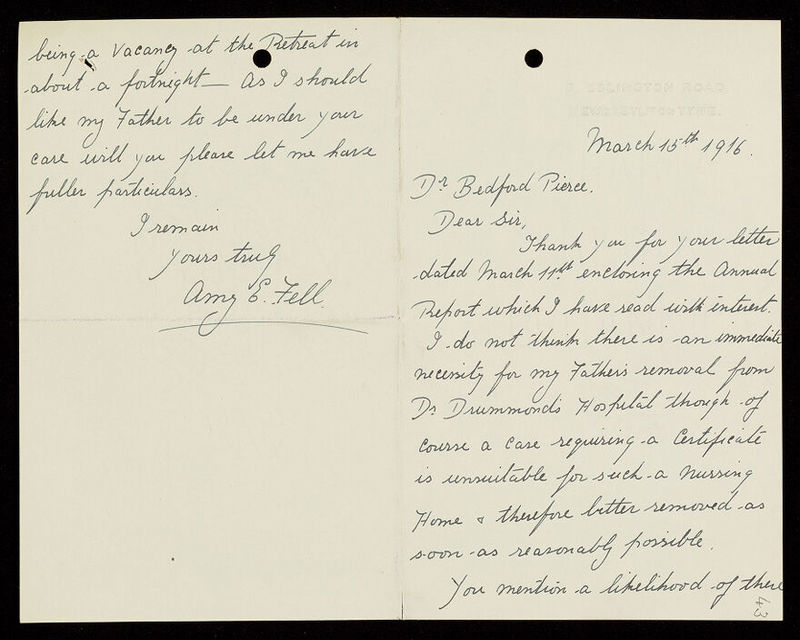 ESLINGTON ROAD,
NEWCASTLE-ON-TYNE.
March 15th 1916.
Dr Bedford Pierce.
Dear Sir,
Thank you for your letter
dated March 11th enclosing the Annual
Report which I have read with interest.
I do not think there is an immediate
necessity for my Father's removal from
Dr Drummond's Hospital though of
course a case requiring a Certificate
is unsuitable for such a Nursing
Home & therefore better removed as
soon as reasonably possible.
You mention a likelihood of there
43
being a vacancy at the Retreat in
about a fortnight — As I should
like my Father to be under your
care will you please let me have
fuller particulars.
I remain
yours truly
Amy E. Fell.